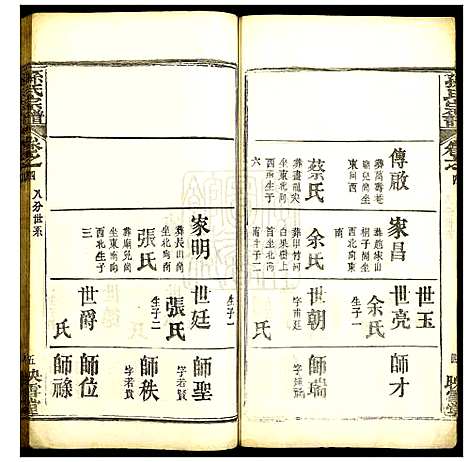 孫氏宗譜
卷之四
四
映雪堂
傳啟
葬萬壽巷
廟兒崗坐
東向西
蔡氏
葬畫龍尖
坐東南向
西北生子
六
家昌
葬趙家山
桐子崗坐
余氏
葬甲竹河
白果樹上
首坐北向
南生子二
世玉
世亮
余氏
生子一
世朝
字南廷
師才
師瑞
孫氏宗譜
卷之四
八分世系
五
映雪堂
家明
葬長山崗
坐東南向
西北生子
張氏
葬廟兒崗
坐東南向
西北生子
三
世廷
生子二
張氏
生子二
世爵
氏
師聖
字若賢
師秩
字若賢
師位
師祿